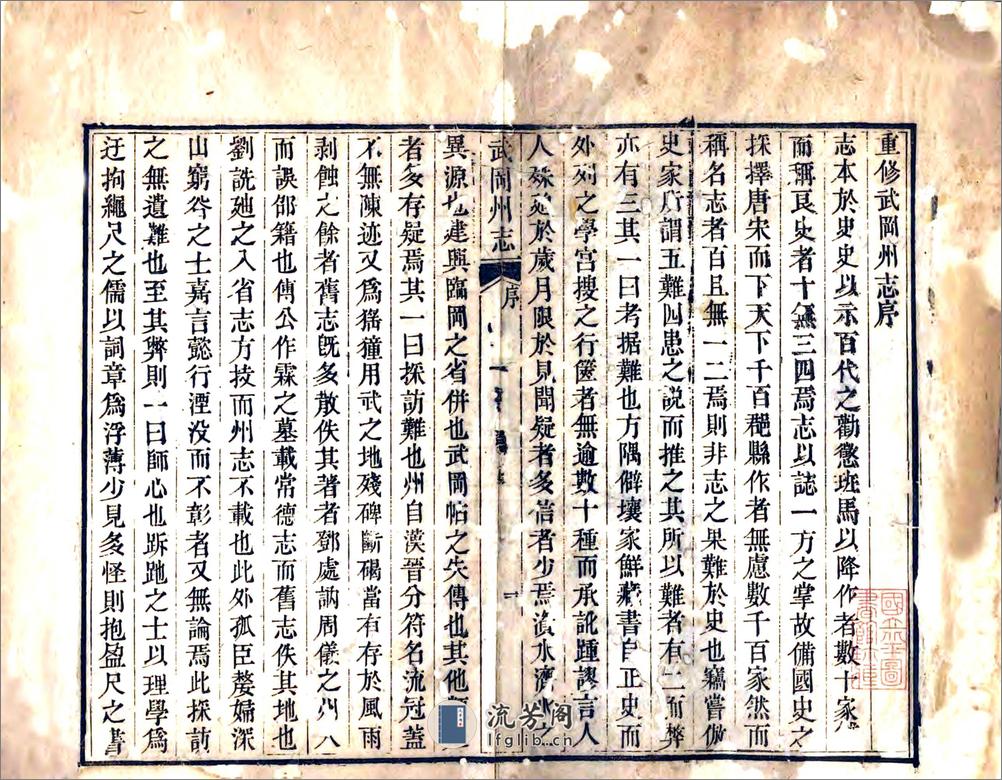 重修武岡州志序
志本於史史以示百代之勸懲班馬以降作者數十家
而稱良史者十無三四焉志以誌一方之掌故備國史之
採擇唐宋而下天下千百郡縣作者無慮數千百家然而
稱名志者百且無一二焉則非志之果難於史也竊嘗倣
史家所謂五難四患之說而推之其所以難者有二而弊
亦有三其一曰考据難也方隅僻壤家鮮藏書自正史而
外求之學宮搜之行篋者無逾數十種而承訛踵謬言人
人殊遠於歲月限於見聞疑者多信者少焉資水濟水
武岡州志
序
一
異源也建興臨岡之省併也武岡帖之失傳也其他
者多存疑焉其一曰採訪難也州自漢晉分符名流冠蓋
不無陳迹又為猺獞用武之地殘碑斷碣當有存於風雨
剥蝕之餘者舊志既多散佚其著者鄧處訥周儀之州人
而誤邵籍也傳公作霖之墓載常德志而舊志佚其地也
劉詵廸之入省志方技而州志不載也此外孤臣嫠婦深
山窮谷之士嘉言懿行湮没而不彰者又無論焉此採訪
之無遺難也至其弊則一曰師心也跅跎之士以理學為
迂拘繩尺之儒以詞章為浮薄少見多怪則抱盈尺之書
國立北平圖書館收藏
流芳阁
lfglib.cn